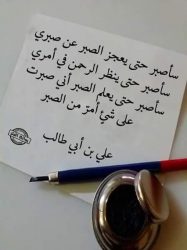 سأصبر حتى يعجز الصبر عن صبري
سأصبر حتى ينظر الرحمن في أمري
سأصبر حتى يعلم الصبر أني صبرت
على شيٍ أمرّ من الصبر
علي بن أبي طالب